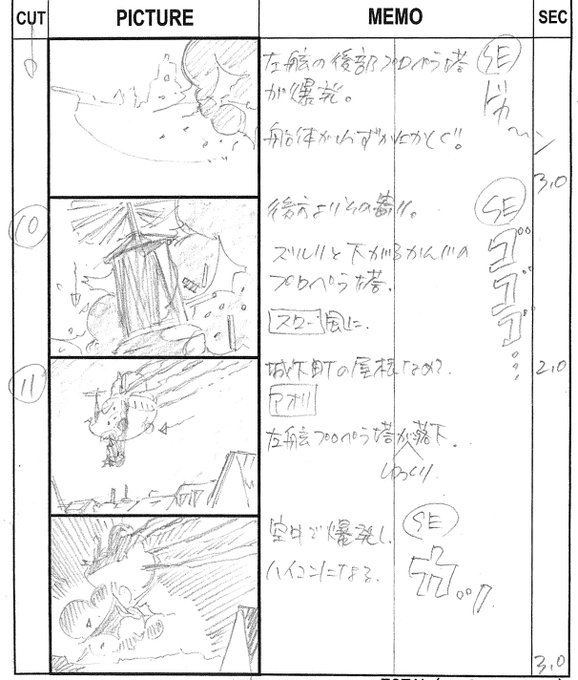 CUT
PICTURE
MEMO
SEC
左舷の後部プロペラ塔
が爆発。
SE
ドカ〜ン
船体がわずかにかしぐ。
3.0
10
後方よりその
SE
ズルリと下がるかんじの
プロペラ塔。
ゴゴゴ…
スロー風に。
2.0
11
城下町の屋根なめ。
アオリ
左舷プロペラ塔が落下。
ゆっくり
空中で爆発し、
SE
ハイコンになる。
3.0